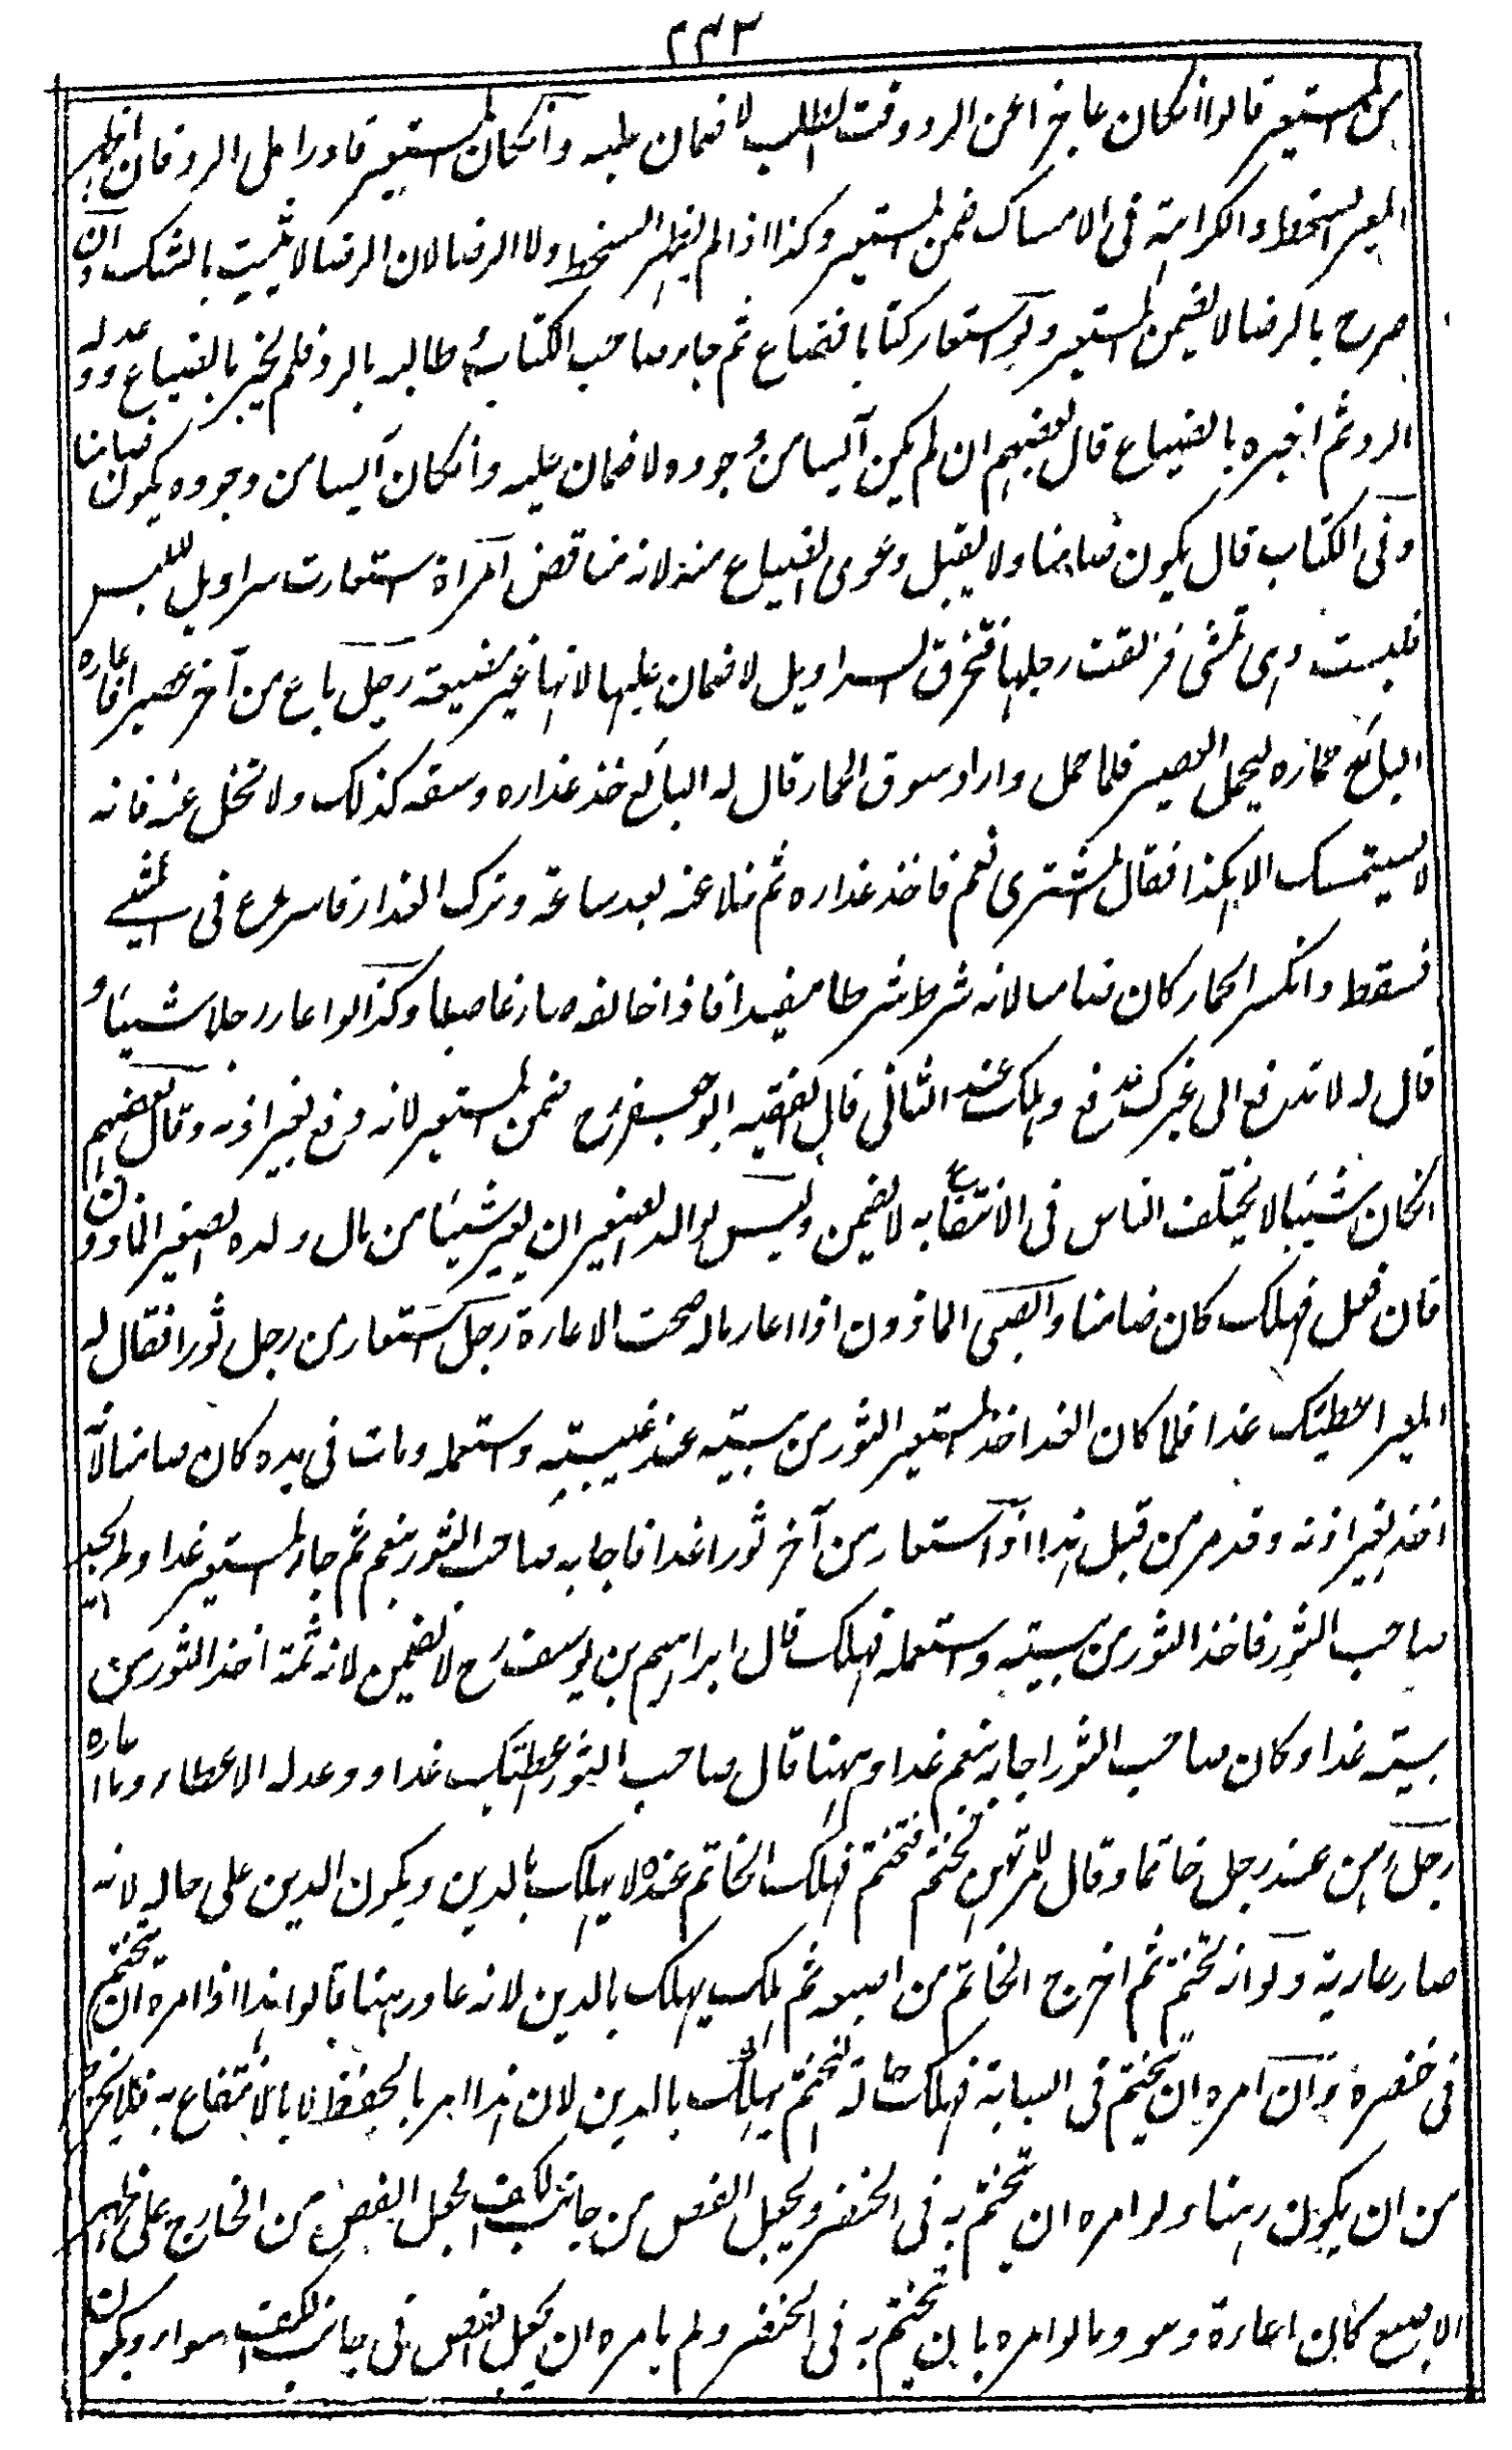 ٢٣٣
من المستعير قالوا انكان عاجزا عن الرد وقت الطلب لا ضمان عليه وانكان المستعير قادرا على الرد فان اظهر
المعير السخط والكراهة فى الامساك ضمن المستعير وكذا اذا لم يظهر السخط ولا الرضا لان الرضا لا يثبت بالشك وان
صرح بالرضا لا يضمن المستعير ولو استعار كتابا فضاع ثم جاء صاحب الكتاب وطالبه بالرد فلم يخبر بالضياع ووعد له
الرد ثم اخبره بالضياع قال بعضهم ان لم يكن آيسا من وجوده لا ضمان عليه وانكان آيسا من وجوده يكون ضامنا
وفى الكتاب قال يكون ضامنا ولا يقبل دعوى الضياع منه لانه مناقض امرأة استعارت سراويل للبس
فلبست وهى تمشى فزلقت رجلها فتخرق السراويل لا ضمان عليها لانها غير مضيعة رجل باع من آخر عصيرا فاعاره
البائع حماره ليحمل العصير فلما حمل واراد سوق الحمار قال له البائع خذ عذاره وسقه كذلك ولا تخل عنه فانه
لا يستمسك الا بكذا فقال المشترى نعم فاخذ عذاره ثم خلا عنه بعد ساعة وترك العذار فاسرع فى المشى
فسقط وانكسر الحمار كان ضامنا لانه شرط شرطا مفيدا فاذا خالفه صار غاصبا وكذا لو اعار رجلا شيئا و
قال له لا تدفع الى غيرك فدفع وهلك عند الثانى قال الفقيه ابو جعفر رح ضمن المستعير لانه دفع بغير اذنه وقال بعضهم
انكان شيئا لا يختلف الناس فى الانتفاع به لا يضمن وليس لوالد الصغير ان يعير شيئا من مال ولده الصغير الماذون
فان فعل فهلك كان ضامنا والصبى الماذون اذا اعار ماله صحت الاعارة رجل استعار من رجل ثورا فقال له
المعير اعطيتك غدا فلما كان الغد اخذ المستعير الثور من بيته عند غيبته واستعمله ومات فى يده كان ضامنا لانه
اخذ بغير اذنه وقد مر من قبل هذا اذا استعار من آخر ثورا غدا فاجابه صاحب الثور بنعم ثم جاء المستعير غدا ولم يجد
صاحب الثور فاخذ الثور من بيته واستعمله فهلك قال ابراهيم بن يوسف رح لا يضمن لانه ثمة اخذ الثور من
بيته غدا وكان صاحب الثور اجابه بنعم غدا وههنا قال صاحب الثور اعطيتك غدا ووعد له الاعطاء وما اعاره
رجل رهن عند رجل خاتما وقال للمرتهن تختم فتختم فهلك الخاتم عنده لا يهلك بالدين ويكون الدين على حاله لانه
صار عارية ولو انه تختم ثم اخرج الخاتم من اصبعه ثم هلك يهلك بالدين لانه عاد رهنا قالوا هذا اذا امره ان يتختم
فى خنصره وان امره ان يتختم فى السبابة فهلك حالة التختم يهلك بالدين لان هذا امر بالحفظ لا بالانتفاع به فلا يخرج
من ان يكون رهنا ولو امره ان يتختم به فى الخنصر ويجعل الفص من جانب الكف فجعل الفص من الخارج على ظهر
الاصبع كان اعارة وهو وما لو امره بان يتختم به فى الخنصر ولم يامره ان يجعل الفص فى جانب الكف سواء ويكون